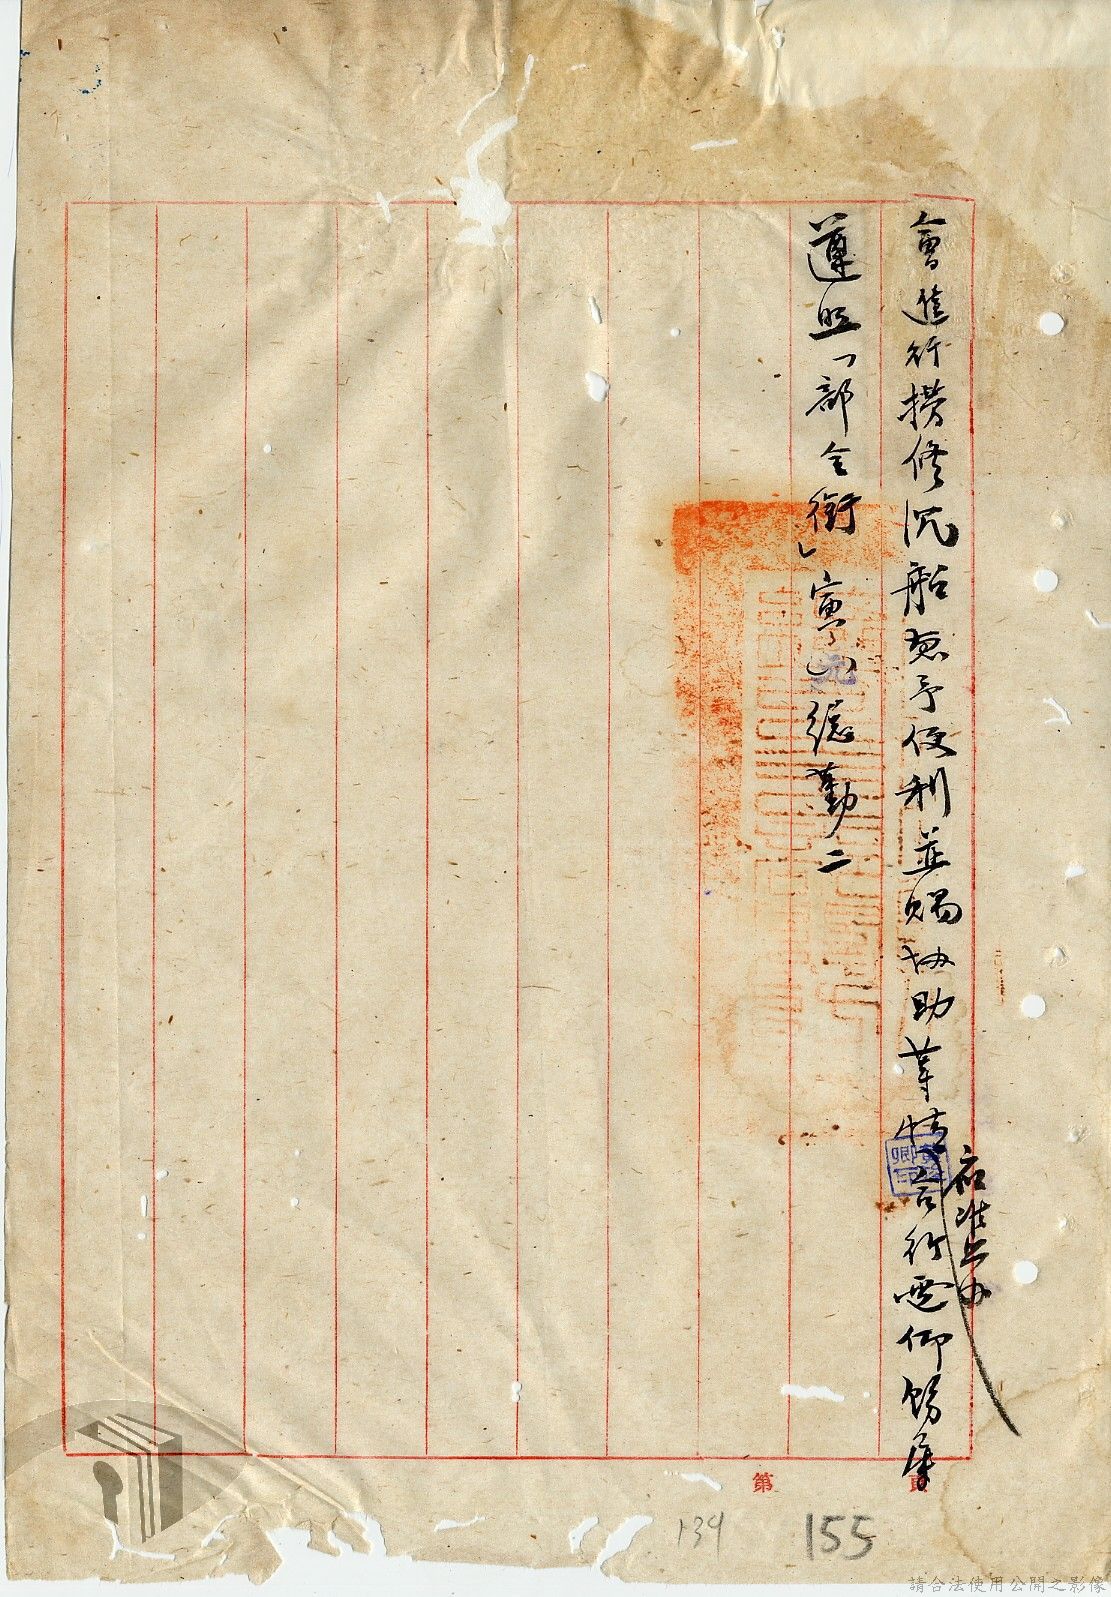 會進行撈修沉船懇予便利並賜協助等情合行電仰飭屬
應准照办
遵照「部全銜」寅元總勤二
卿印
第 頁
139 155
請合法使用公開之影像